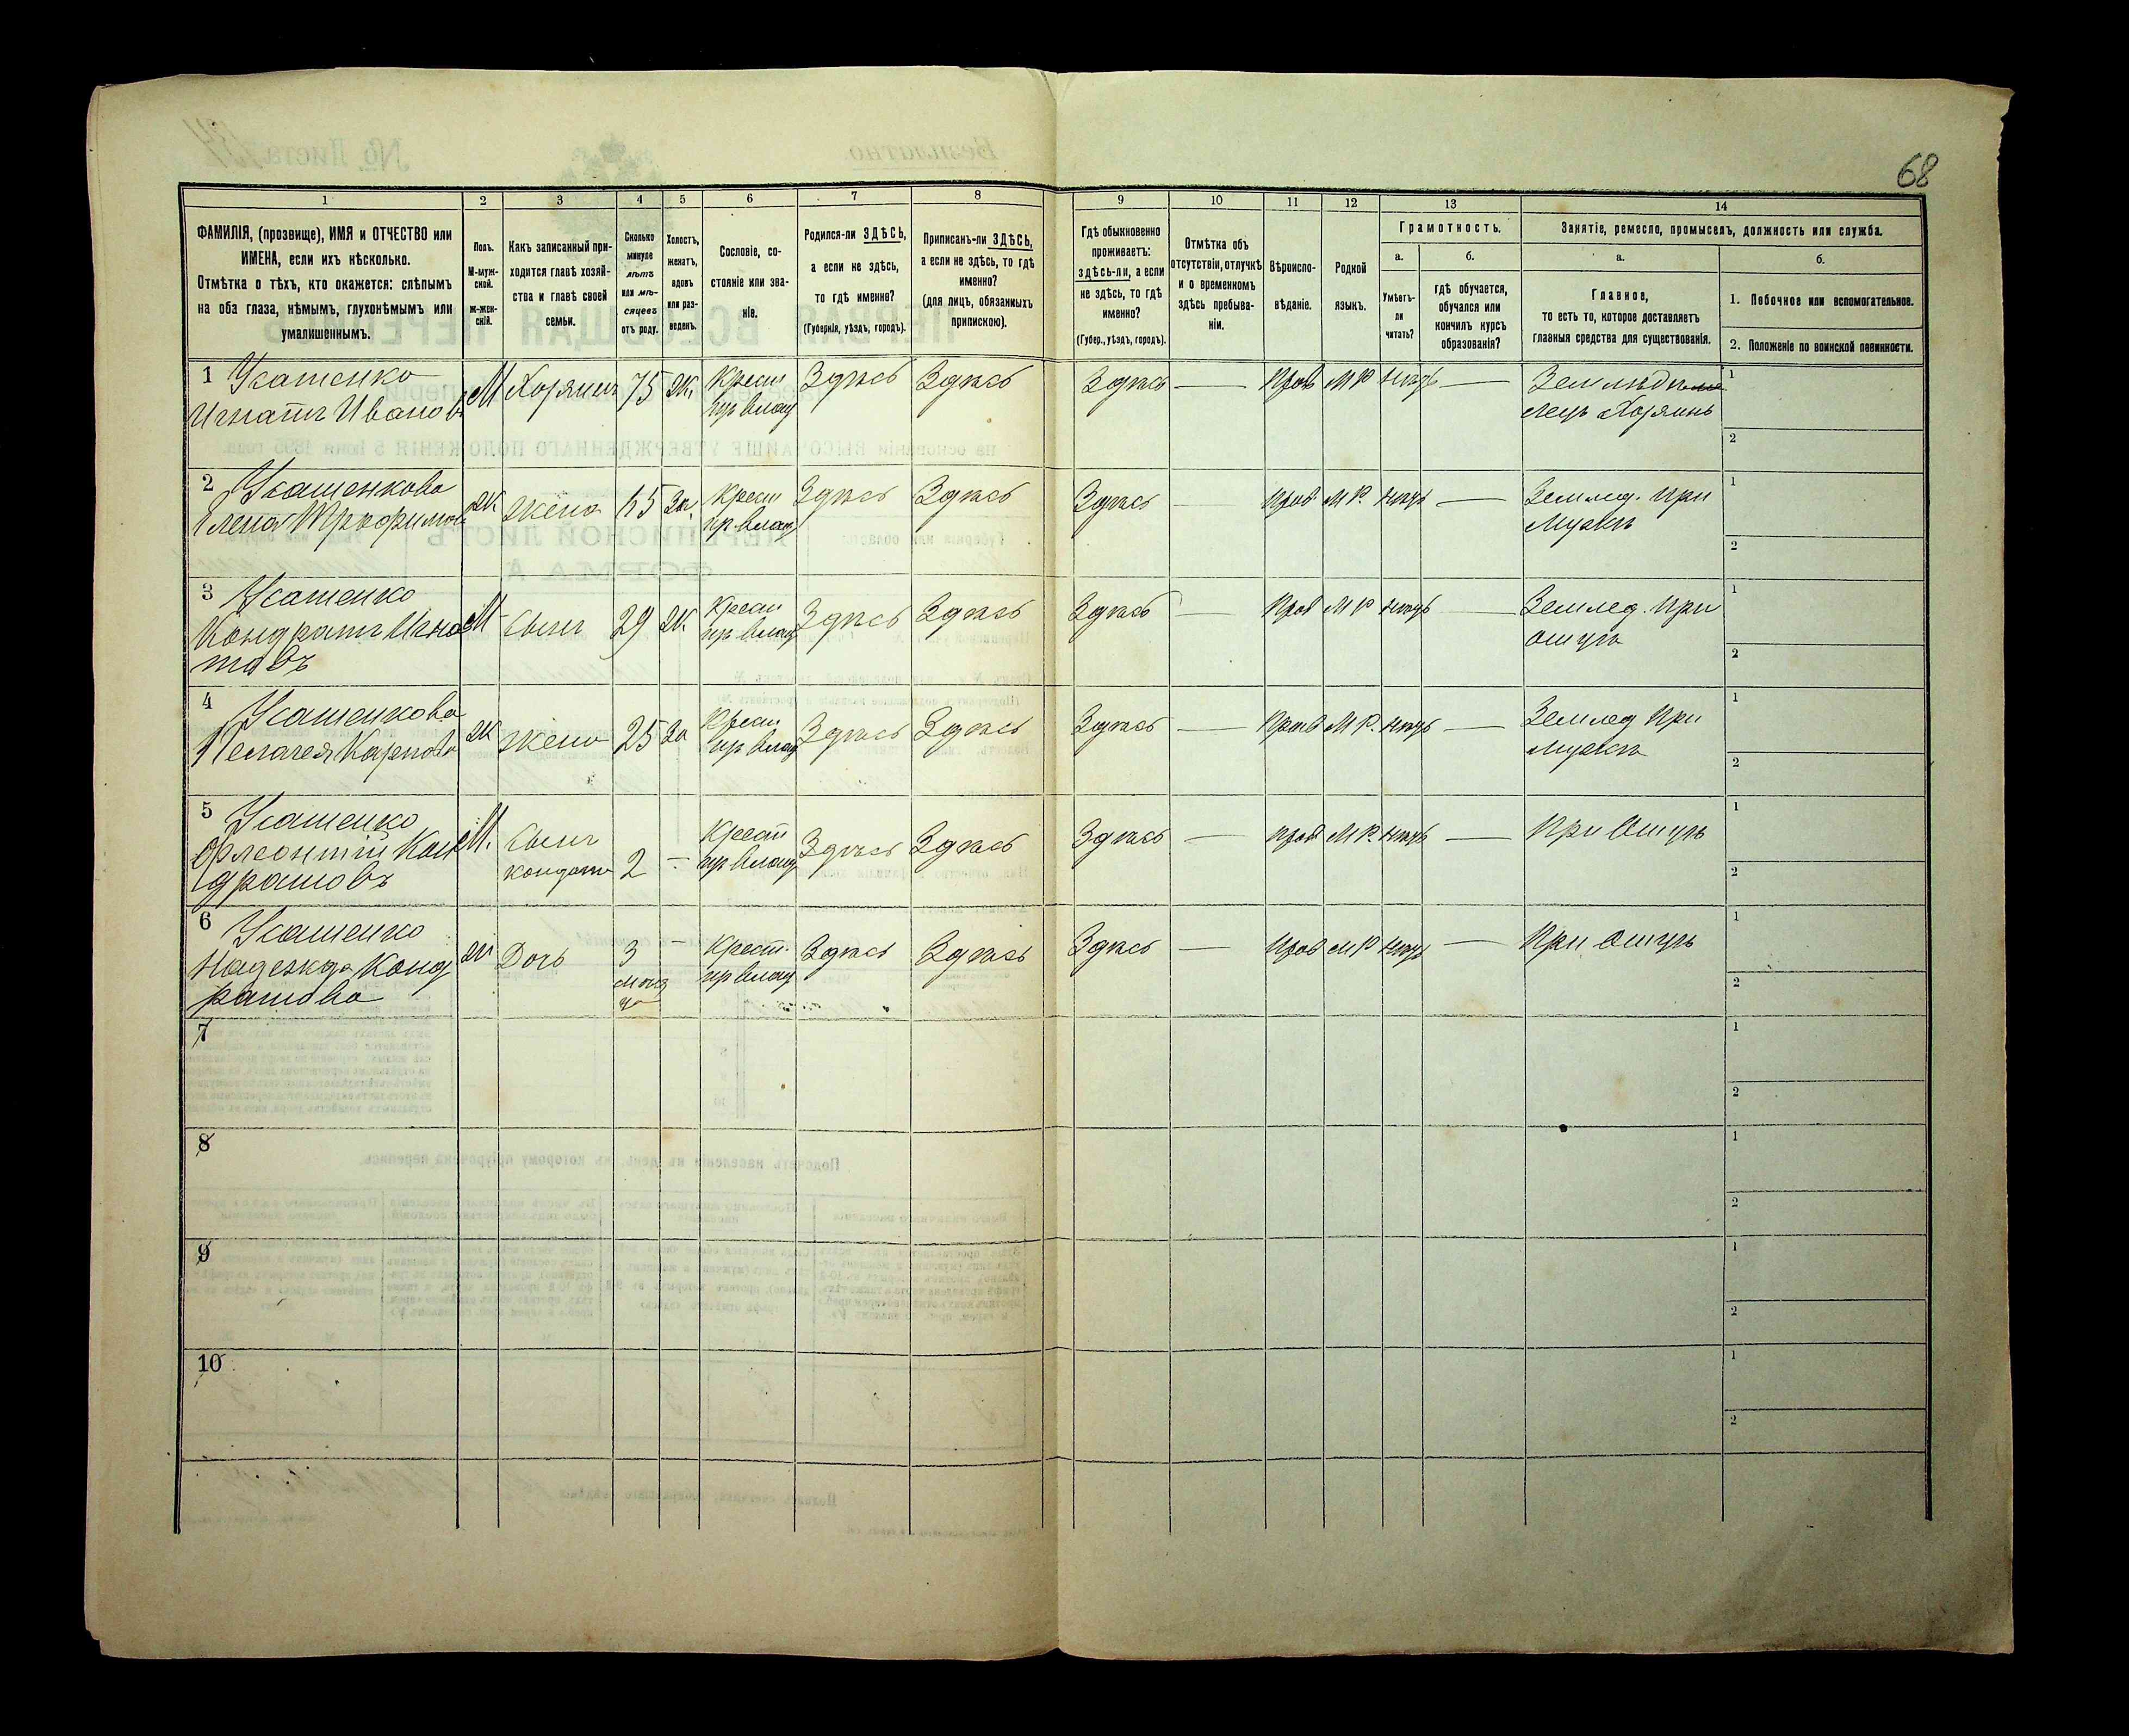 68
1 2 3 4 5 6 7 8 9 10 11 12 13 14
ФАМИЛІЯ, (прозвище), ИМЯ и ОТЧЕСТВО или
ИМЕНА, если ихъ нѣсколько.
Отмѣтка о тѣхъ, кто окажется: слѣпымъ
на оба глаза, нѣмымъ, глухонѣмымъ или
умалишеннымъ.
Полъ.
М-муж-
ской.
ж-жен-
скій.
Какъ записанный при-
ходится главѣ хозяй-
ства и главѣ своей
семьи.
Сколько
минуло
лѣтъ
или мѣ-
сяцевъ
отъ роду.
Холостъ,
женатъ,
вдовъ
или раз-
веденъ.
Сословіе, со-
стояніе или зва-
ніе.
Родился-ли ЗДѢСЬ,
а если не здѣсь,
то гдѣ именно?
(Губернія, уѣздъ, городъ).
Приписанъ-ли ЗДѢСЬ,
а если не здѣсь, то гдѣ
именно?
(для лицъ, обязанныхъ
припискою).
Гдѣ обыкновенно
проживаетъ:
здѣсь-ли, а если
не здѣсь, то гдѣ
именно?
(Губер., уѣздъ, городъ).
Отмѣтка объ
отсутствіи, отлучкѣ
и о временномъ
здѣсь пребыва-
ніи.
Вѣроиспо-
вѣданіе.
Родной
языкъ.
Грамотность.
а.
Умѣетъ-
ли
читать?
б.
гдѣ обучается,
обучался или
кончилъ курсъ
образованія?
Занятіе, ремесло, промыселъ, должность или служба.
а.
Главное,
то есть то, которое доставляетъ
главныя средства для существованія.
б.
1. Побочное или вспомогательное.
2. Положеніе по воинской повинности.
1 Усатенко
Игнатъ Ивановъ
М Хозяинъ 75 Ж. Крест
Здѣсь Здѣсь Здѣсь — Прав М Р нѣтъ —
лецъ Хозяинъ
1
2
2 Усатенкова
Елена
Ж жена 65 Крест
Здѣсь Здѣсь Здѣсь — Прав М Р. нѣтъ —
Землед. при
Мужѣ
1
2
3 Усатенко
Кондратъ Игна
товъ
М Сынъ 29 Ж Крест
Здѣсь Здѣсь Здѣсь — Прав М Р нѣтъ —
Землед. при
отцѣ
1
2
4 Усатенкова
Пелагея Карпова
Ж жена 25 Крест
Здѣсь Здѣсь Здѣсь — Прав М Р. нѣтъ —
Землед при
Мужѣ
1
2
5 Усатенко
Кон
дратовъ
М. Сынъ
2 — Крест
Здѣсь Здѣсь Здѣсь — Прав М Р. нѣтъ —
При Отцѣ
1
2
6 Усатенко
Надежда Конд
ратова
Ж Дочь 3 — Крест.
Здѣсь Здѣсь Здѣсь — Прав М Р нѣтъ —
При отцѣ
1
2
7
1
2
8
1
2
9
1
2
10
1
2